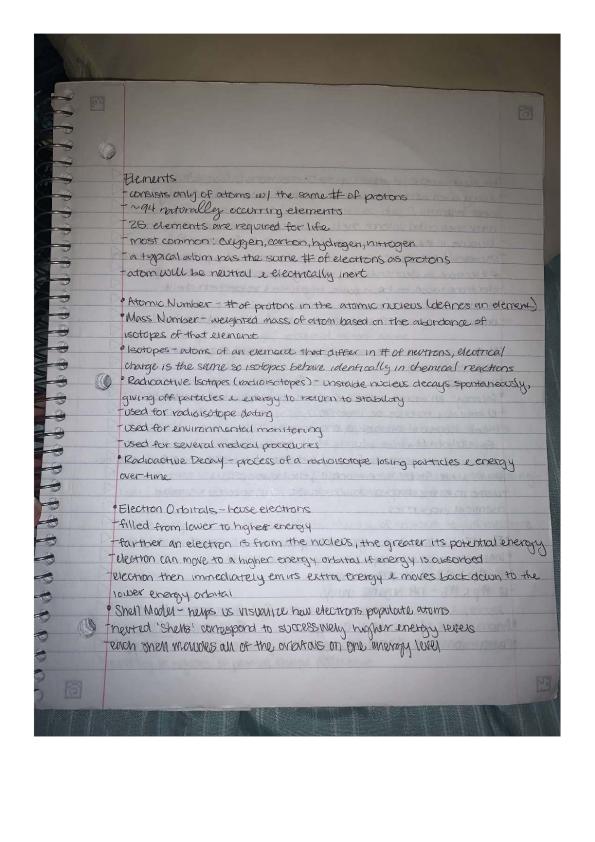 Elements
- consists only of atoms w/ the same # of protons
- ~94 naturally occurring elements
- 25 elements are required for life
- most common: oxygen, carbon, hydrogen, nitrogen
- a typical atom has the same # of electrons as protons
- atom will be neutral & electrically inert
• Atomic Number - # of protons in the atomic nucleus (defines an element)
• Mass Number - weighted mass of atom based on the abundance of
isotopes of that element
• Isotopes - atoms of an element that differ in # of neutrons, electrical
charge is the same so isotopes behave identically in chemical reactions
• Radioactive Isotopes (radioisotopes) - unstable nucleus decays spontaneously,
giving off particles & energy to return to stability
- used for radioisotope dating
- used for environmental monitering
- used for several medical procedures
• Radioactive Decay - process of a radioisotope losing particles & energy
over time
• Electron Orbitals - house electrons
- filled from lower to higher energy
- farther an electron is from the nucleus, the greater its potential energy
- electron can move to a higher energy orbital if energy is absorbed
- electron then immediately emits extra energy & moves back down to the
lower energy orbital
• Shell Model - helps us visualize how electrons populate atoms
- nested 'shells' correspond to successively higher energy levels
- each shell includes all of the orbitals on one energy level